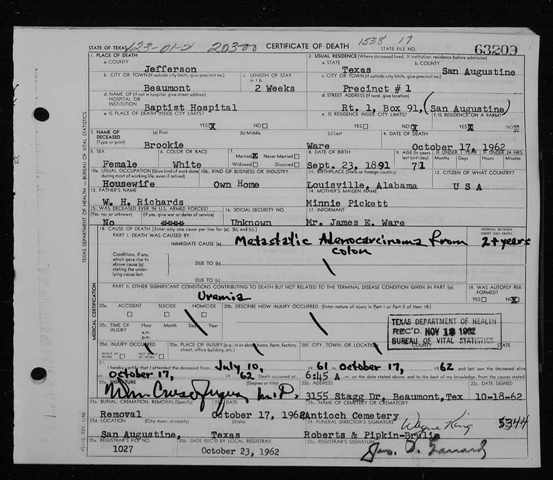 STATE OF TEXAS 203-00 CERTIFICATE OF DEATH 1538 17 STATE FILE NO. 63209
1. PLACE OF DEATH
a. COUNTY Jefferson
2. USUAL RESIDENCE (Where deceased lived. If institution: residence before admission)
a. STATE Texas b. COUNTY San Augustine
b. CITY OR TOWN (If outside city limits, give precinct no.) Beaumont
c. LENGTH OF STAY 2 Weeks
c. CITY OR TOWN (If outside city limits, give precinct no.) Precinct #1
d. NAME OF (If not in hospital, give street address) HOSPITAL OR INSTITUTION Baptist Hospital
d. STREET ADDRESS (If rural, give location) Rt. 1, Box 91, (San Augustine)
e. IS PLACE OF DEATH INSIDE CITY LIMITS? YES X NO
e. IS RESIDENCE INSIDE CITY LIMITS? YES NO X
f. IS RESIDENCE ON A FARM? YES NO
3. NAME OF DECEASED (a) First Brookie (b) Middle (c) Last Ware
4. DATE OF DEATH October 17, 1962
5. SEX Female
6. COLOR OR RACE White
7. Married X Never Married Widowed Divorced
8. DATE OF BIRTH Sept. 23, 1891
9. AGE 71
10a. USUAL OCCUPATION Housewife
10b. KIND OF BUSINESS OR INDUSTRY Own Home
11. BIRTHPLACE Louisville, Alabama
12. CITIZEN OF WHAT COUNTRY? U S A
13. FATHER'S NAME W. H. Richards
14. MOTHER'S MAIDEN NAME Minnie Pickett
15. WAS DECEASED EVER IN U.S. ARMED FORCES? No
16. SOCIAL SECURITY NO. Unknown
17. INFORMANT Mr. James E. Ware
18. CAUSE OF DEATH
PART I. DEATH WAS CAUSED BY:
IMMEDIATE CAUSE (a) Metastatic Adenocarcinoma from colon 2+ years
Conditions, if any, which gave rise to above cause (a) stating the underlying cause last.
DUE TO (b)
DUE TO (c)
PART II. OTHER SIGNIFICANT CONDITIONS CONTRIBUTING TO DEATH BUT NOT RELATED TO THE TERMINAL DISEASE CONDITION GIVEN IN PART I (a)
Uremia
19. WAS AUTOPSY PERFORMED? YES NO X
20a. ACCIDENT SUICIDE HOMICIDE
20b. DESCRIBE HOW INJURY OCCURRED.
20c. TIME OF INJURY
TEXAS DEPARTMENT OF HEALTH
REC'D NOV 13 1962
BUREAU OF VITAL STATISTICS
20d. INJURY OCCURRED
20e. PLACE OF INJURY
20f. CITY, TOWN, OR LOCATION COUNTY STATE
21. I hereby certify that I attended the deceased from July 10, 61 October 17, 62
October 17, 62 Death occurred at 6:45 A m.
M.D. 3155 Stagg Dr, Beaumont, Tex 10-18-62
23a. BURIAL, CREMATION, REMOVAL Removal
October 17, 1962 Antioch Cemetery
San Augustine, Texas
24. FUNERAL DIRECTOR'S SIGNATURE Wayne King 5344
Roberts & Pipkin-Brulin
25a. REGISTRAR'S FILE NO. 1027
25b. DATE REC'D BY LOCAL REGISTRAR October 23, 1962
25c. REGISTRAR'S SIGNATURE